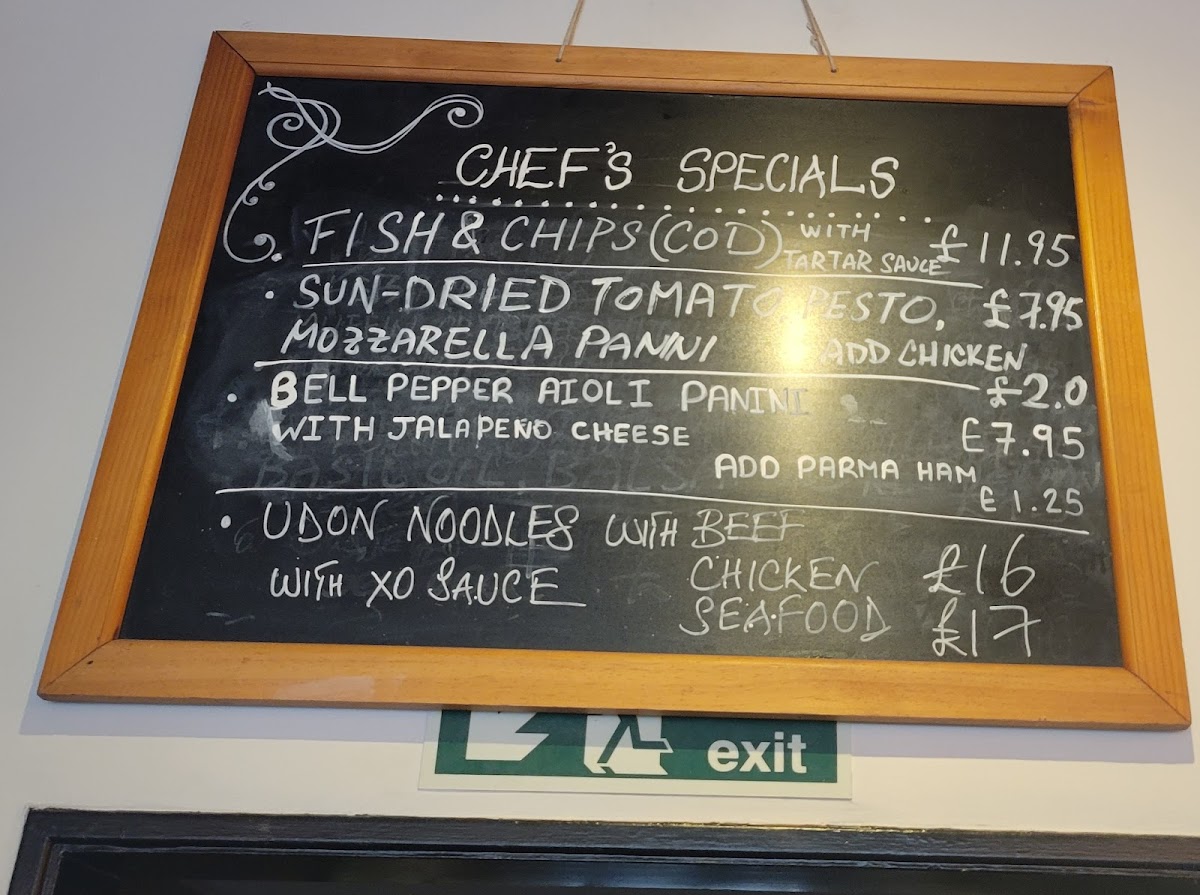 CHEF'S SPECIALS
FISH & CHIPS (COD) WITH TARTAR SAUCE £11.95
• SUN-DRIED TOMATO PESTO, £7.95
MOZZARELLA PANINI ADD CHICKEN
£2.0
• BELL PEPPER AIOLI PANINI
WITH JALAPENO CHEESE £7.95
ADD PARMA HAM
£1.25
• UDON NOODLES WITH BEEF
WITH XO SAUCE CHICKEN £16
SEAFOOD £17
exit